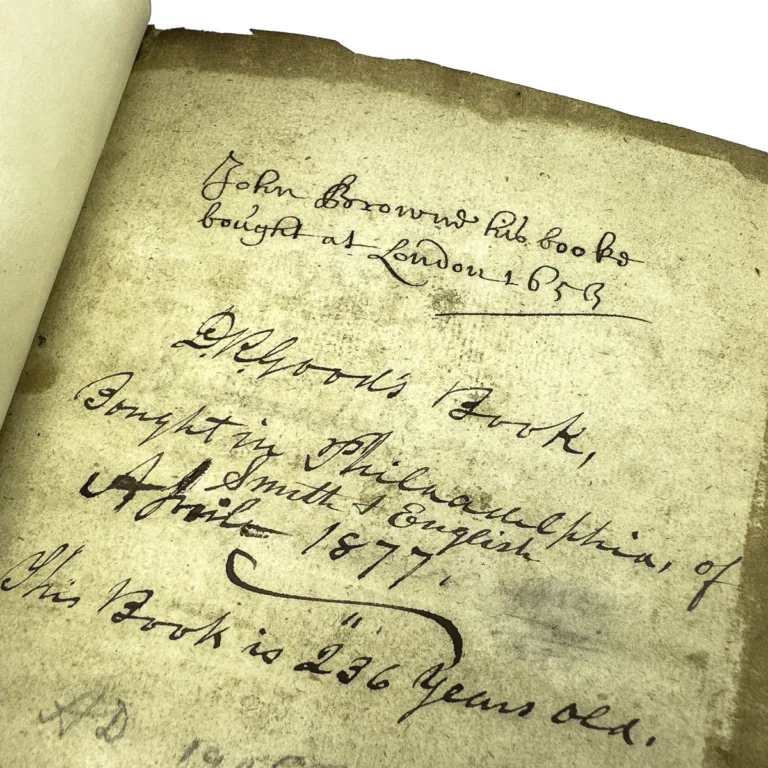 John Browne his booke
bought at London 1653
D.R. Good's Book,
Bought in Philadadelphia, of
Smith & English
Aprile 1877.
This Book is 236 Years old.
AD